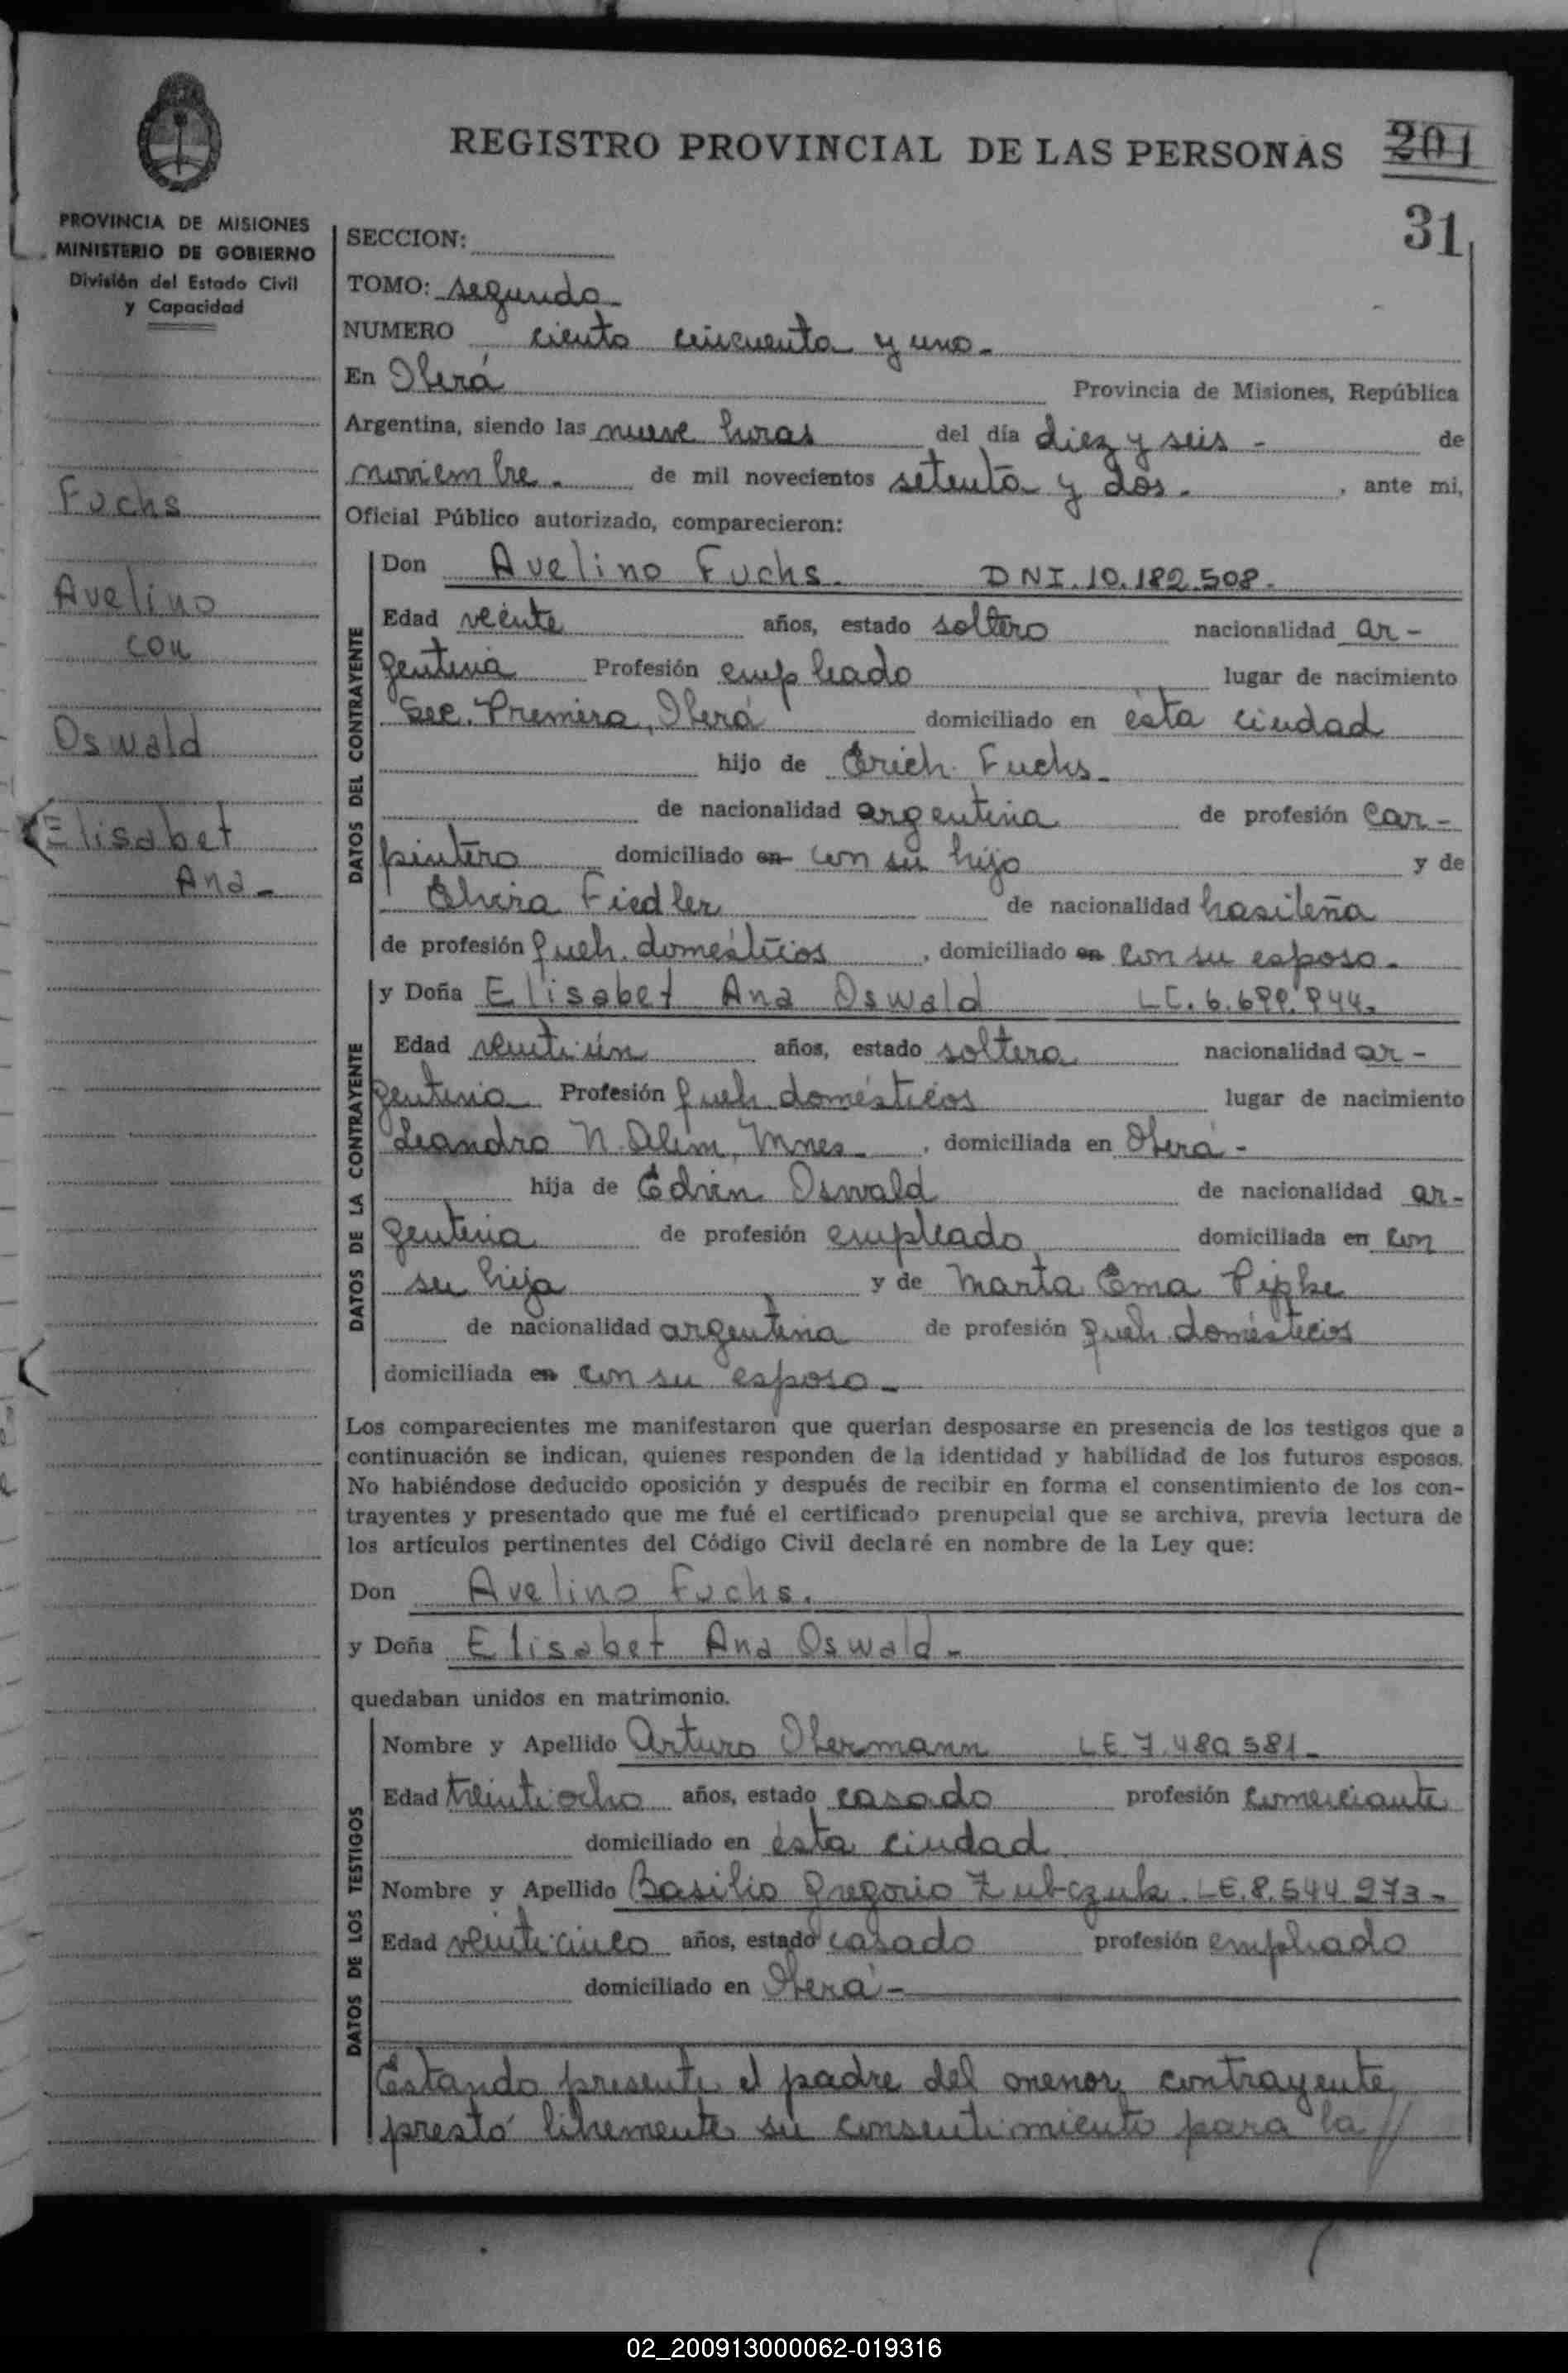 REGISTRO PROVINCIAL DE LAS PERSONAS
201
31
PROVINCIA DE MISIONES
MINISTERIO DE GOBIERNO
División del Estado Civil
y Capacidad
Fuchs
Avelino
con
Oswald
Elisabet
Ana-
SECCION:
TOMO: segundo-
NUMERO ciento cincuenta y uno-
En Oberá Provincia de Misiones, República
Argentina, siendo las nueve horas del día diez y seis - de
noviembre. de mil novecientos setenta y dos. , ante mi,
Oficial Público autorizado, comparecieron:
DATOS DEL CONTRAYENTE
Don Avelino Fuchs. DNI. 10.182.508.
Edad veinte años, estado soltero nacionalidad ar-
gentina Profesión empleado lugar de nacimiento
Sec. Primera, Oberá domiciliado en ésta ciudad
hijo de Erich Fuchs-
de nacionalidad argentina de profesión car-
pintero domiciliado en con su hijo y de
Elvira Fiedler de nacionalidad brasileña
de profesión queh. domésticos , domiciliado en con su esposo-
DATOS DE LA CONTRAYENTE
y Doña Elisabet Ana Oswald LC.
Edad veintiún años, estado soltera nacionalidad ar-
gentina Profesión queh domésticos lugar de nacimiento
Leandro N. Alem, Mnes- , domiciliada en Oberá-
hija de Edvin Oswald de nacionalidad ar-
gentina de profesión empleado domiciliada en con
su hija y de Marta Ema Pipke
de nacionalidad argentina de profesión queh domésticos
domiciliada en con su esposo-
Los comparecientes me manifestaron que querían desposarse en presencia de los testigos que a
continuación se indican, quienes responden de la identidad y habilidad de los futuros esposos.
No habiéndose deducido oposición y después de recibir en forma el consentimiento de los con-
trayentes y presentado que me fué el certificado prenupcial que se archiva, previa lectura de
los artículos pertinentes del Código Civil declaré en nombre de la Ley que:
Don Avelino Fuchs.
y Doña Elisabet Ana Oswald-
quedaban unidos en matrimonio.
DATOS DE LOS TESTIGOS
Nombre y Apellido Arturo Obermann LE. 7.480.581-
Edad treintiocho años, estado casado profesión comerciante
domiciliado en ésta ciudad
Nombre y Apellido Basilio Gregorio Zubczuk. LE. 8.544.973-
Edad veinticinco años, estado casado profesión empleado
domiciliado en Oberá-
Estando presente el padre del menor contrayente
prestó libremente su consentimiento para la //
02_200913000062-019316